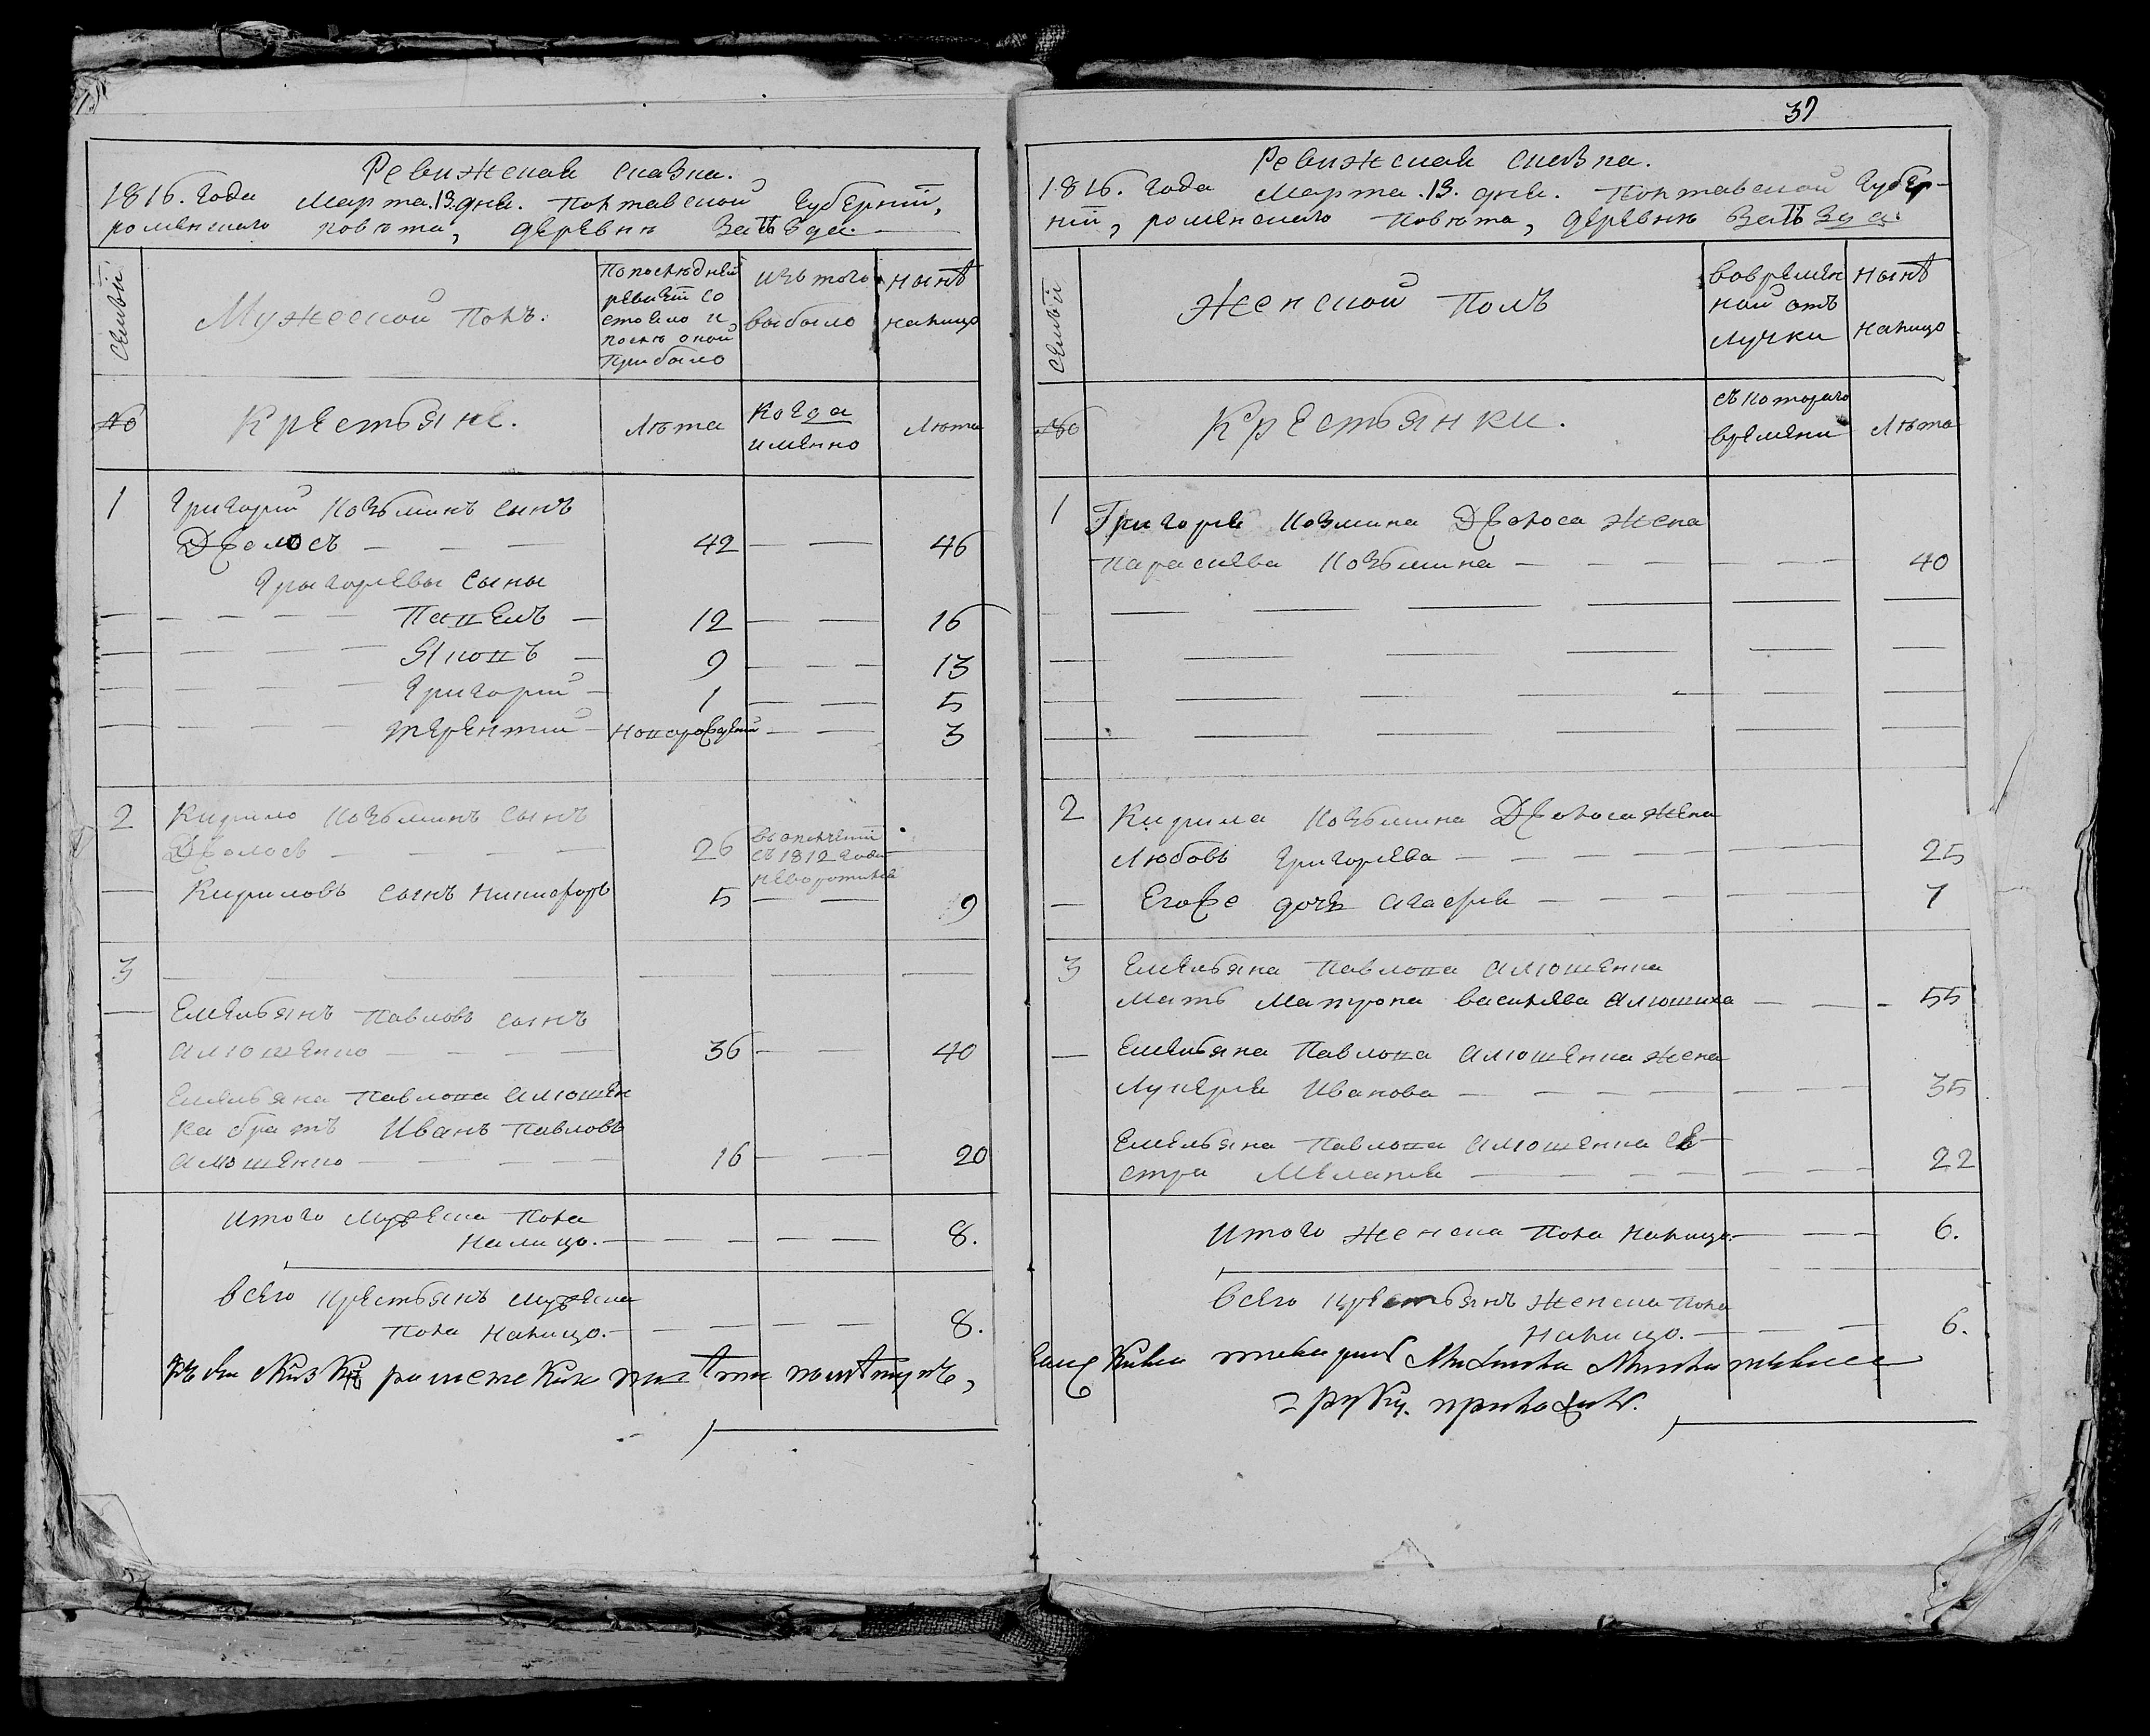 Ревижская сказка.
1816. Года Марта. 13. дня. Полтавской Губерніи,
роменского повѣта, деревни Заѣзда.
Семьи
Мужеской Полъ.
По последней
ревизіи со
стояло и
после оной
прибыло
Изъ того
выбыло
Нынѣ
налицо
№
Крестьяне.
Лѣта
Когда
именно
Лѣта
1 Григорий Козьминъ сынъ
42 46
Григорьевы сыны
12 16
Яковъ 9 13
Григорий 1 5
Терентий новорожденный 3
2 Кирило Козьминъ сынъ
26
съ 1812 года
Кириловъ сынъ Никифоръ 5 9
3
Емельянъ Павловъ сынъ
Алюшенко 36 40
Емельяна Павлова Алюшен
ка братъ Иванъ Павловъ
Алюшенко 16 20
Итого мужеска пола
налицо. 8.
Всего крестьянъ мужеска
пола налицо. 8.
37
Ревижская сказка.
1816. Года Марта. 13. дня. Полтавской Губер-
ніи, роменского повѣта, деревни Заѣзда.
Семьи
Женской Полъ
Во времен
ной отъ
лучки
Нынѣ
налицо
№
Крестьянки.
Съ которого
времени
Лѣта
1 Григорья Козмина жена
Параскева Козьмина 40
2 Кирила Козьмина жена
Любовь Григорьева 25
Егоже дочь Агафья 7
3 Емельяна Павлова Алюшенка
мать Матрона Васильева Алюшиха 55
Емельяна Павлова Алюшенка жена
Лукерья Иванова 35
Емельяна Павлова Алюшенка се-
стра Меланья 22
Итого женска пола налицо. 6.
Всего крестьянъ женска пола
налицо. 6.